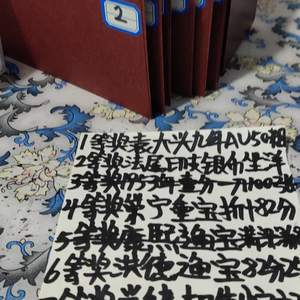 2
1等奖袁大头九年AU50
2等奖法属印支银币坐洋
3等奖1953年壹分一刀100
4等奖崇宁重宝折十82分
5等奖康熙通宝满汉
6等奖洪德通宝82分